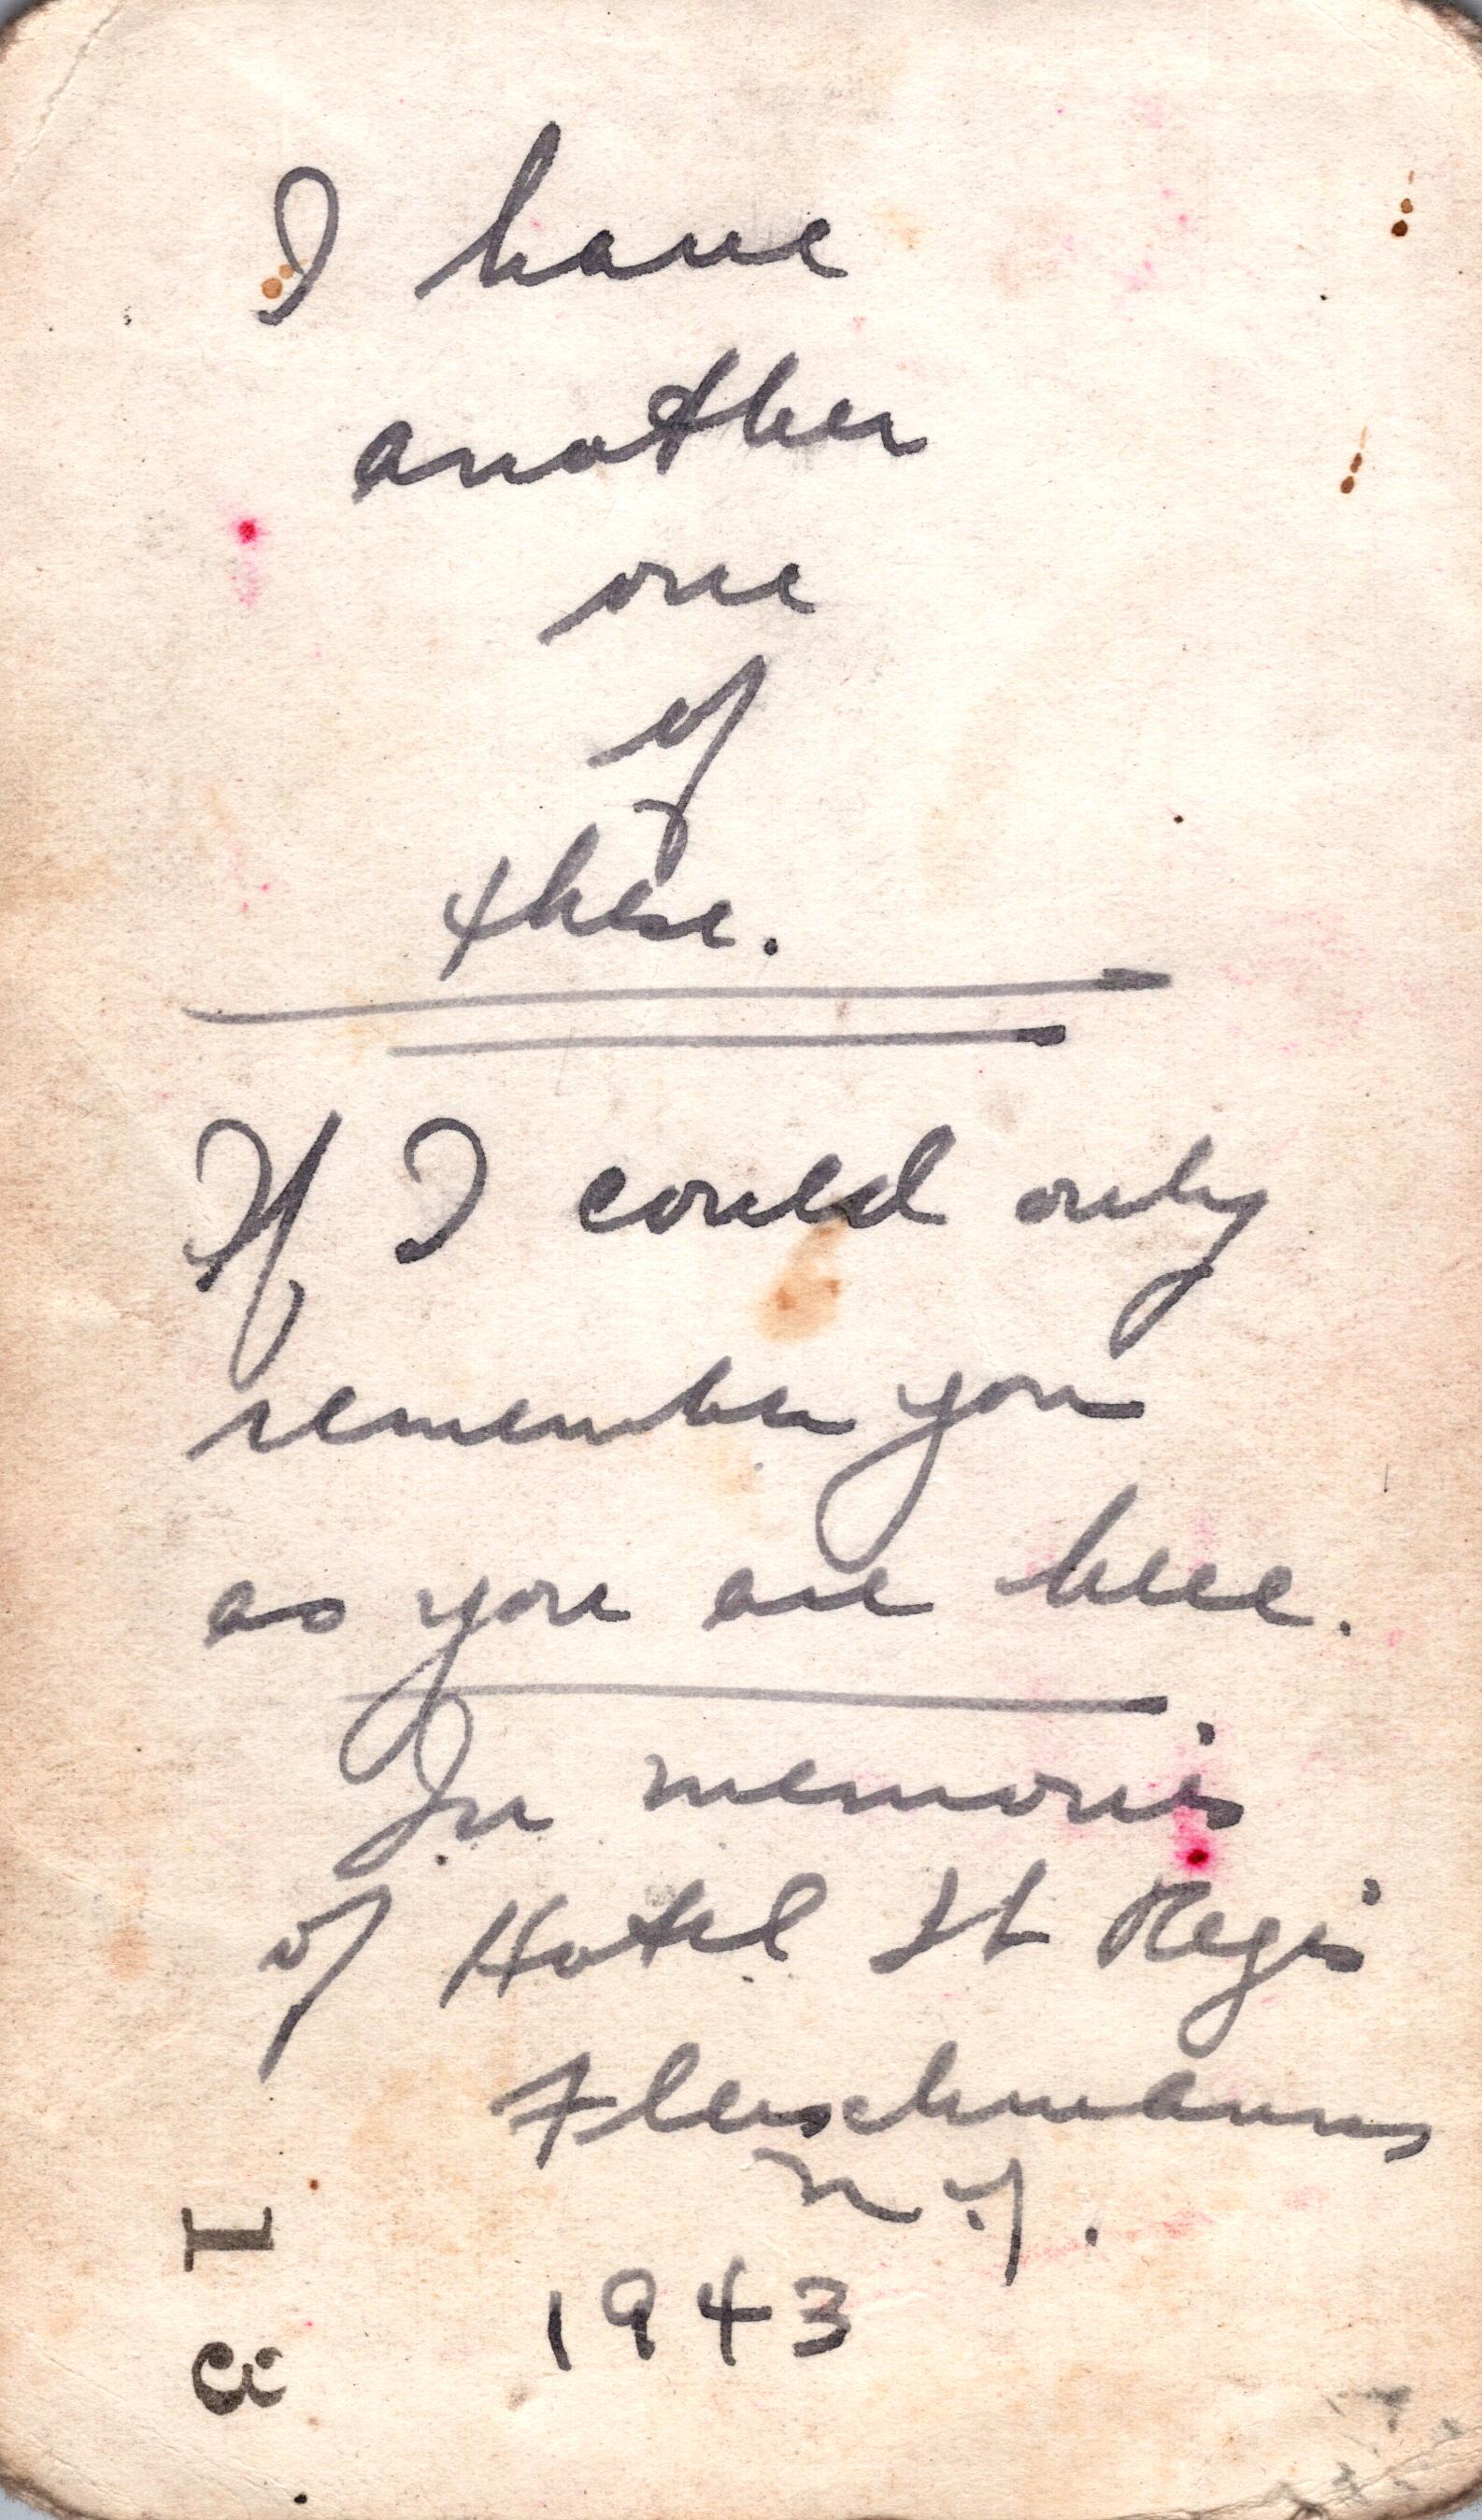 I have
another
one
of
these.
If I could only
remember you
as you are here.
In memoris
of Hotel St Regis
Fleischmanns
N.Y.
1943
13